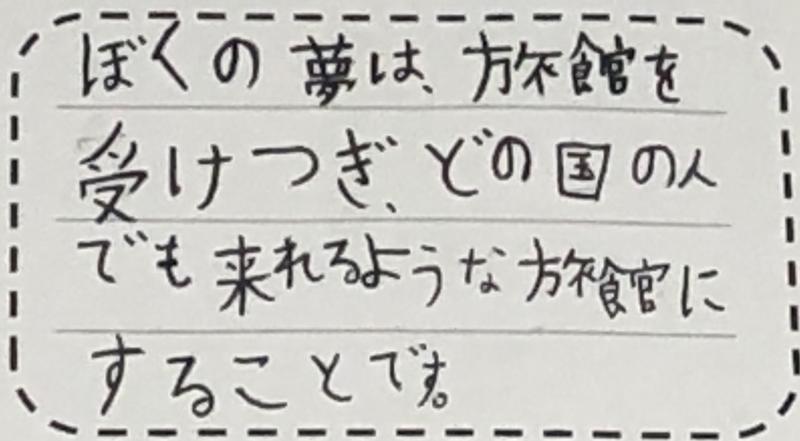 ぼくの夢は、旅館を
受けつぎ、どの国の人
でも来れるような旅館に
することです。